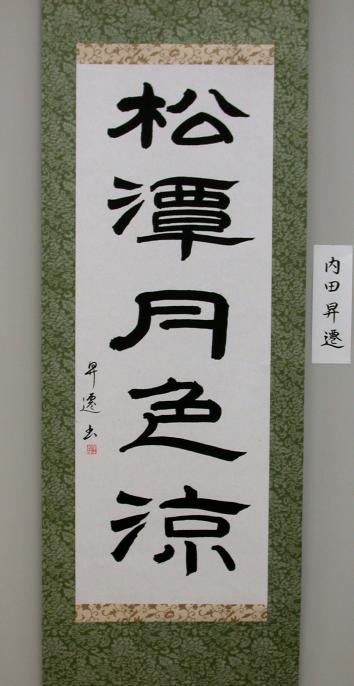 松潭月色涼
昇遷書
内田昇遷